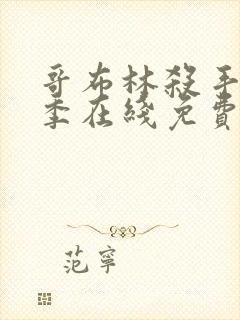 哥布林殺手
季在綫免費
范寧